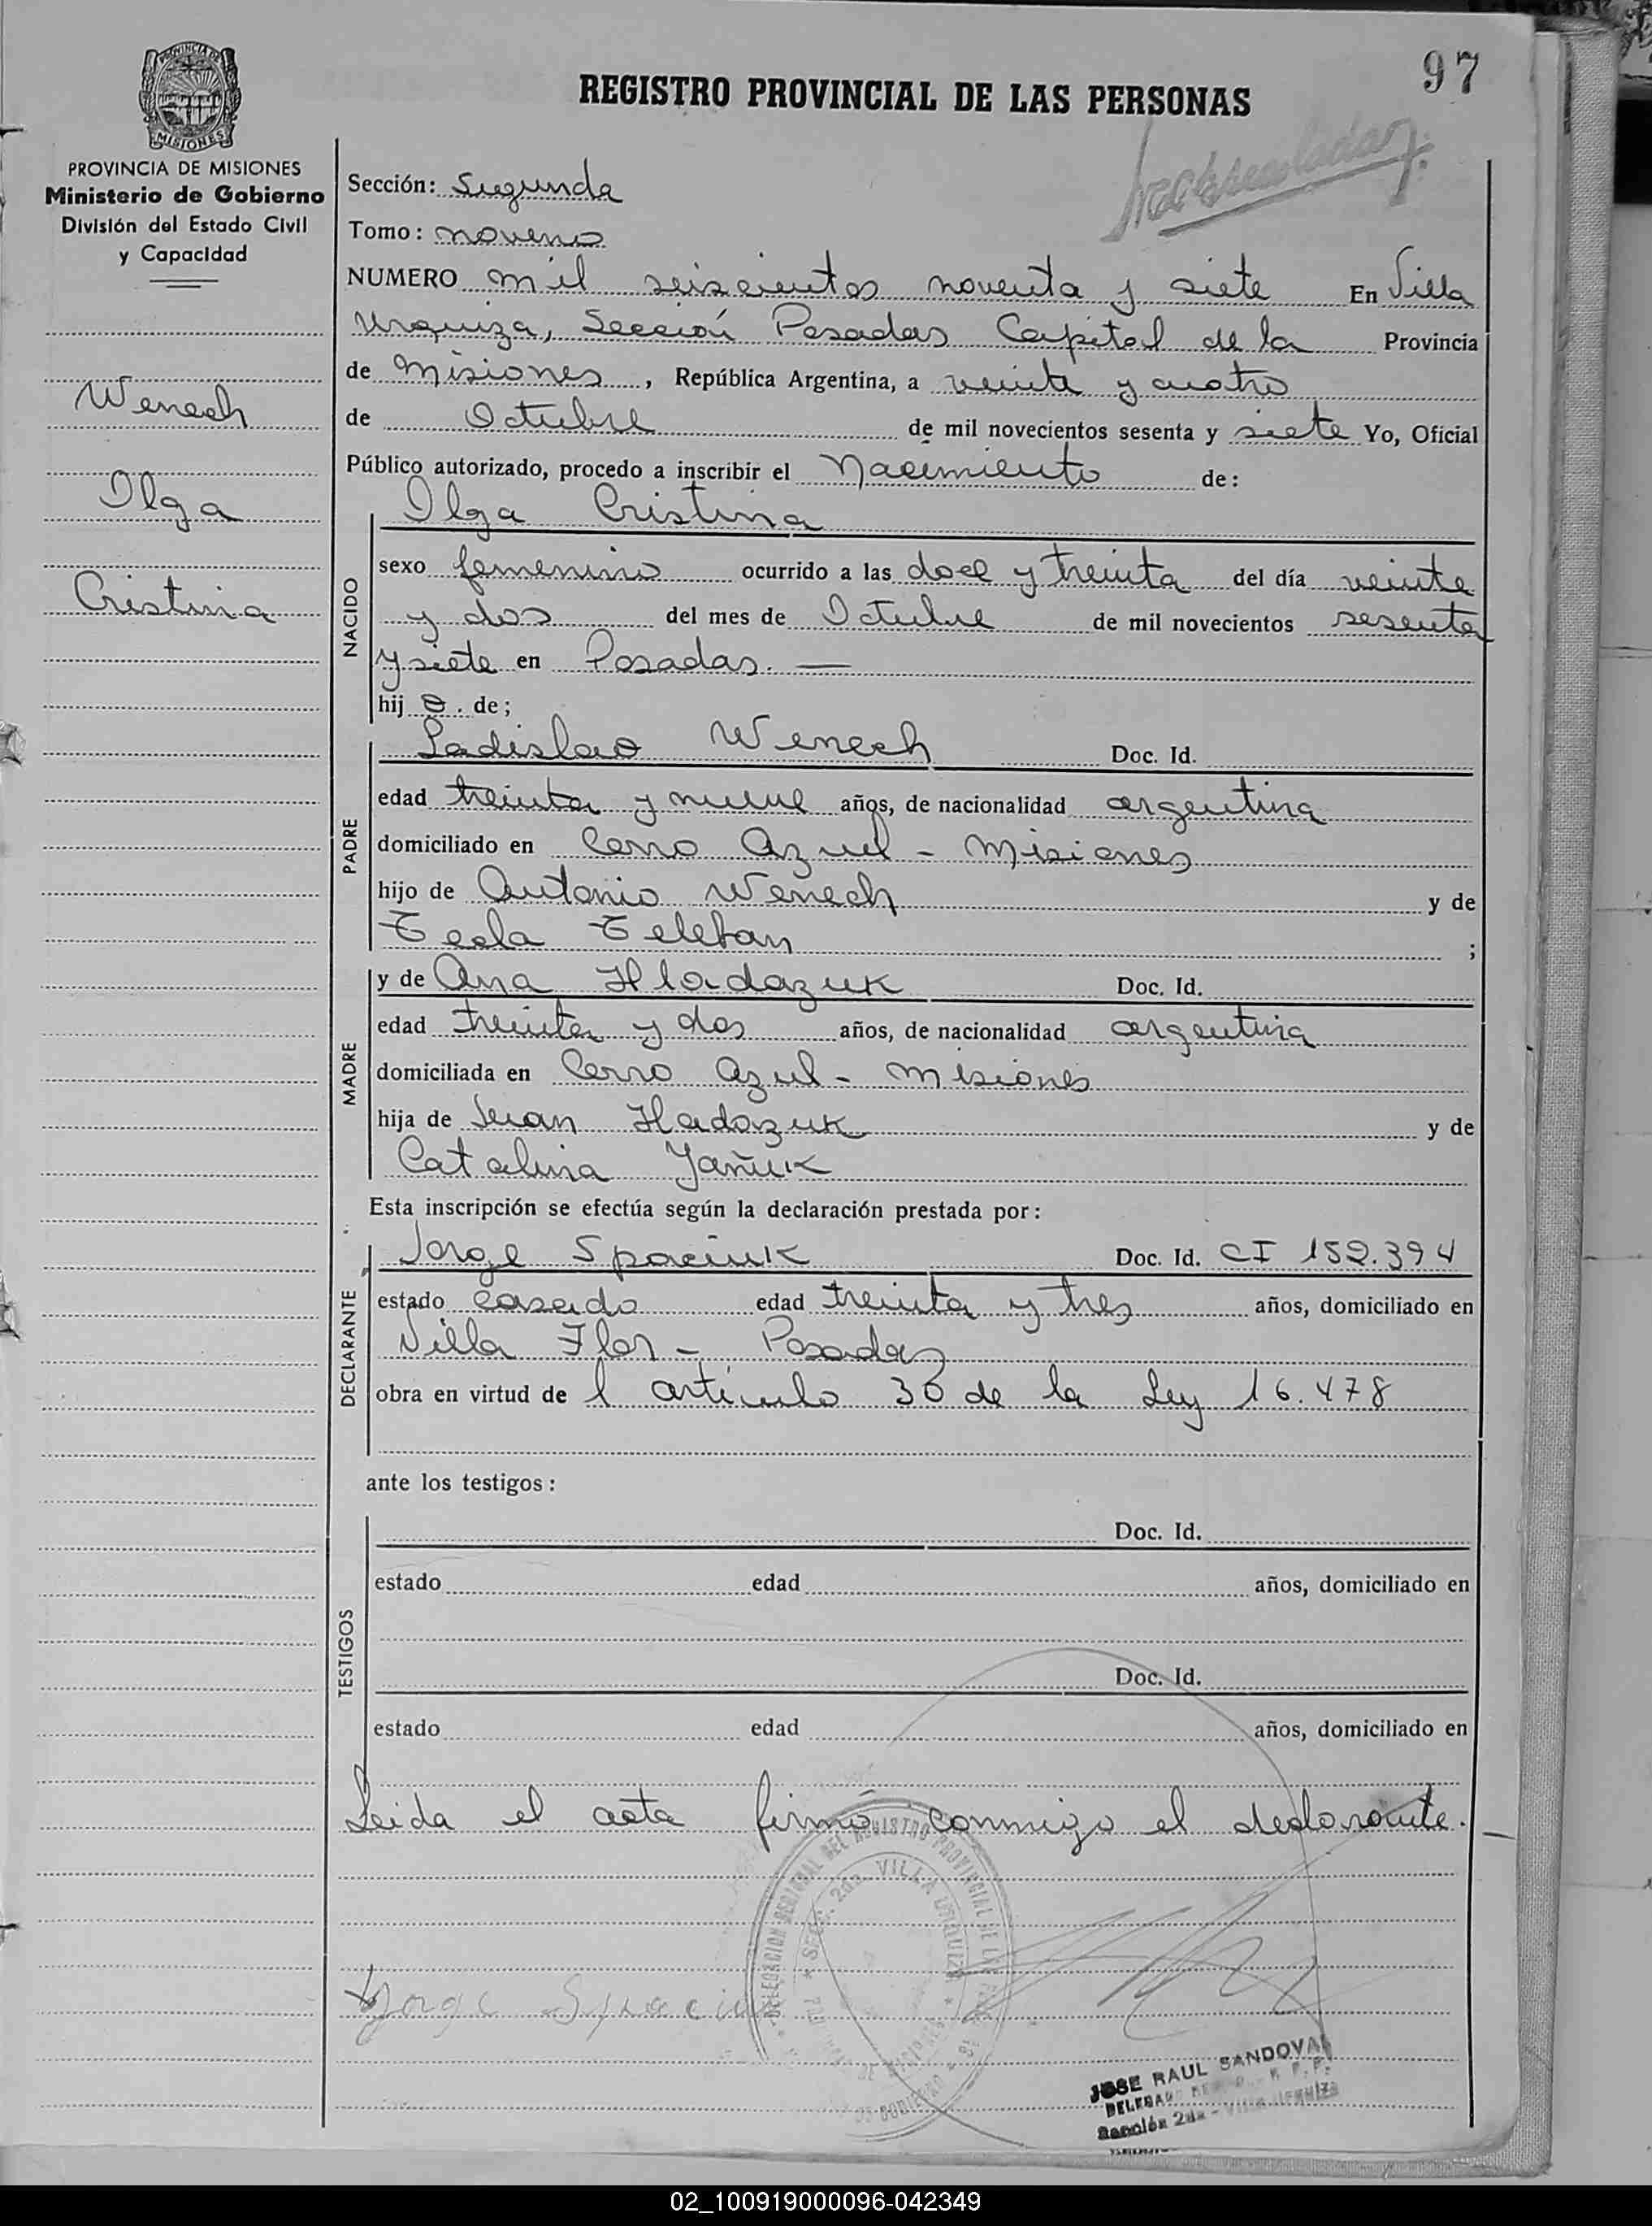 97
REGISTRO PROVINCIAL DE LAS PERSONAS
PROVINCIA DE
MISIONES
PROVINCIA DE MISIONES
Ministerio de Gobierno
División del Estado Civil
y Capacidad
Wenech
Olga
Cristina
Sección: Segunda
Tomo: noveno
NUMERO mil seiscientos noventa y siete En Villa
Urquiza, Sección Posadas Capital de la Provincia
de Misiones, República Argentina, a veinte y cuatro
de Octubre de mil novecientos sesenta y siete Yo, Oficial
Público autorizado, procedo a inscribir el Nacimiento de:
Olga Cristina
NACIDO
sexo femenino ocurrido a las doce y treinta del día veinte
y dos del mes de Octubre de mil novecientos sesenta
y siete en Posadas. —
hij a. de;
PADRE
Ladislao Wenech Doc. Id.
edad treinta y nueve años, de nacionalidad argentina
domiciliado en Cerro Azul - Misiones
hijo de Antonio Wenech y de
Tecla Teleban ;
MADRE
y de Ana Hladazuk Doc. Id.
edad treinta y dos años, de nacionalidad argentina
domiciliada en Cerro Azul - Misiones
hija de Juan Hladazuk y de
Catalina Yañuk
Esta inscripción se efectúa según la declaración prestada por:
DECLARANTE
Jorge Spaciuk Doc. Id. CI 152.394
estado casado edad treinta y tres años, domiciliado en
Villa Flor - Posadas
obra en virtud de l artículo 36 de la Ley 16.478
ante los testigos:
TESTIGOS
Doc. Id.
estado edad años, domiciliado en
Doc. Id.
estado edad años, domiciliado en
Leida el acta firmó conmigo el declarante.
DELEGACION REGIONAL DEL REGISTRO PROVINCIAL DE LAS
SECC. 2da. VILLA URQUIZA
Jorge Spaciuk
JOSE RAUL SANDOVAL
DELEGADO
Sección 2da - VILLA URQUIZA
02_100919000096-042349